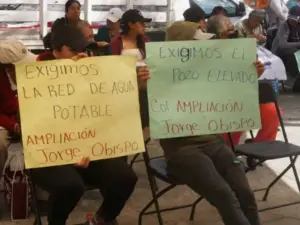 EXigimos
LA RED DE AGUA
POTABLE
AMPLIACIÓN
Jorge Obispo.
EXigimos EL
POZO ELEVADO
Col AMPLIACION
Jorge Obispo